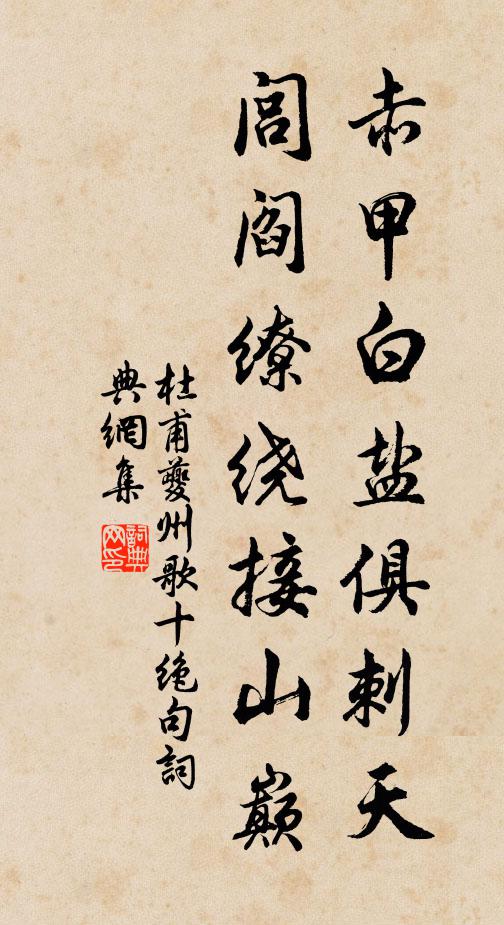 赤甲白盐俱刺天
闾阎缭绕接山巅
杜甫夔州歌十绝句詞
典網集
詞典
网印